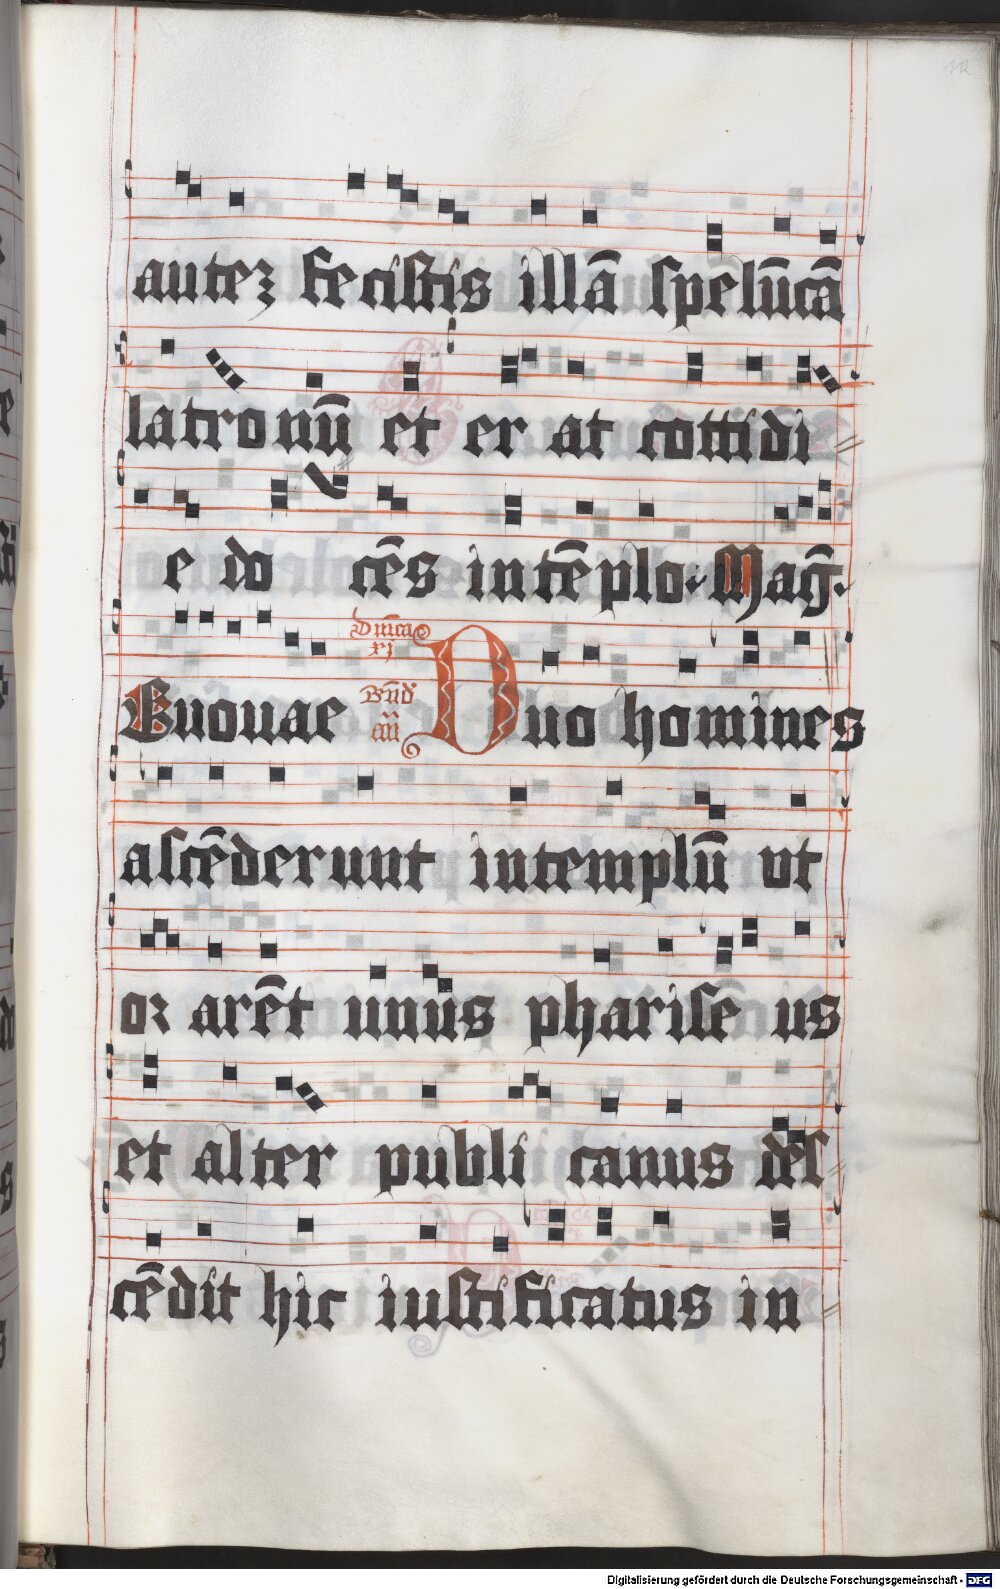 112
auteȝ fecistis illā spelūcā
latronū et er at cottidi
e do cēs intēplo· Mag̅·
Dn̄ica
xj
Euouae Bn̄d' Duo homines
an̄
ascēderunt intemplū vt
oꝛ arēt unus pharise us
et alter publi canus des
cēdit hic iustificatus in
Digitalisierung gefördert durch die Deutsche Forschungsgemeinschaft - DFG